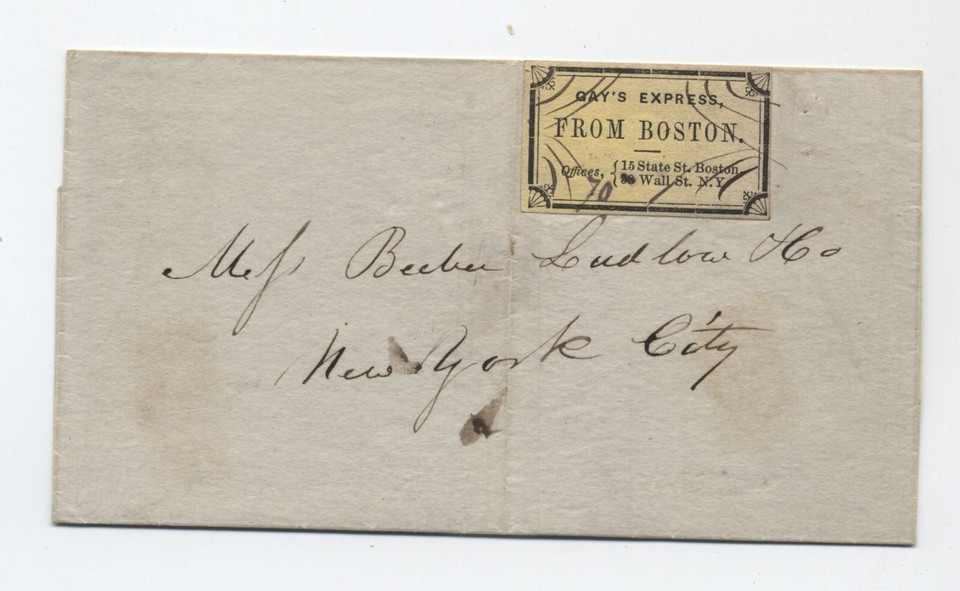 GAY'S EXPRESS,
FROM BOSTON.
Offices, { 15 State St. Boston
Wall St. N.Y.
70
Mess Beebee Ludlow & Co
New York City